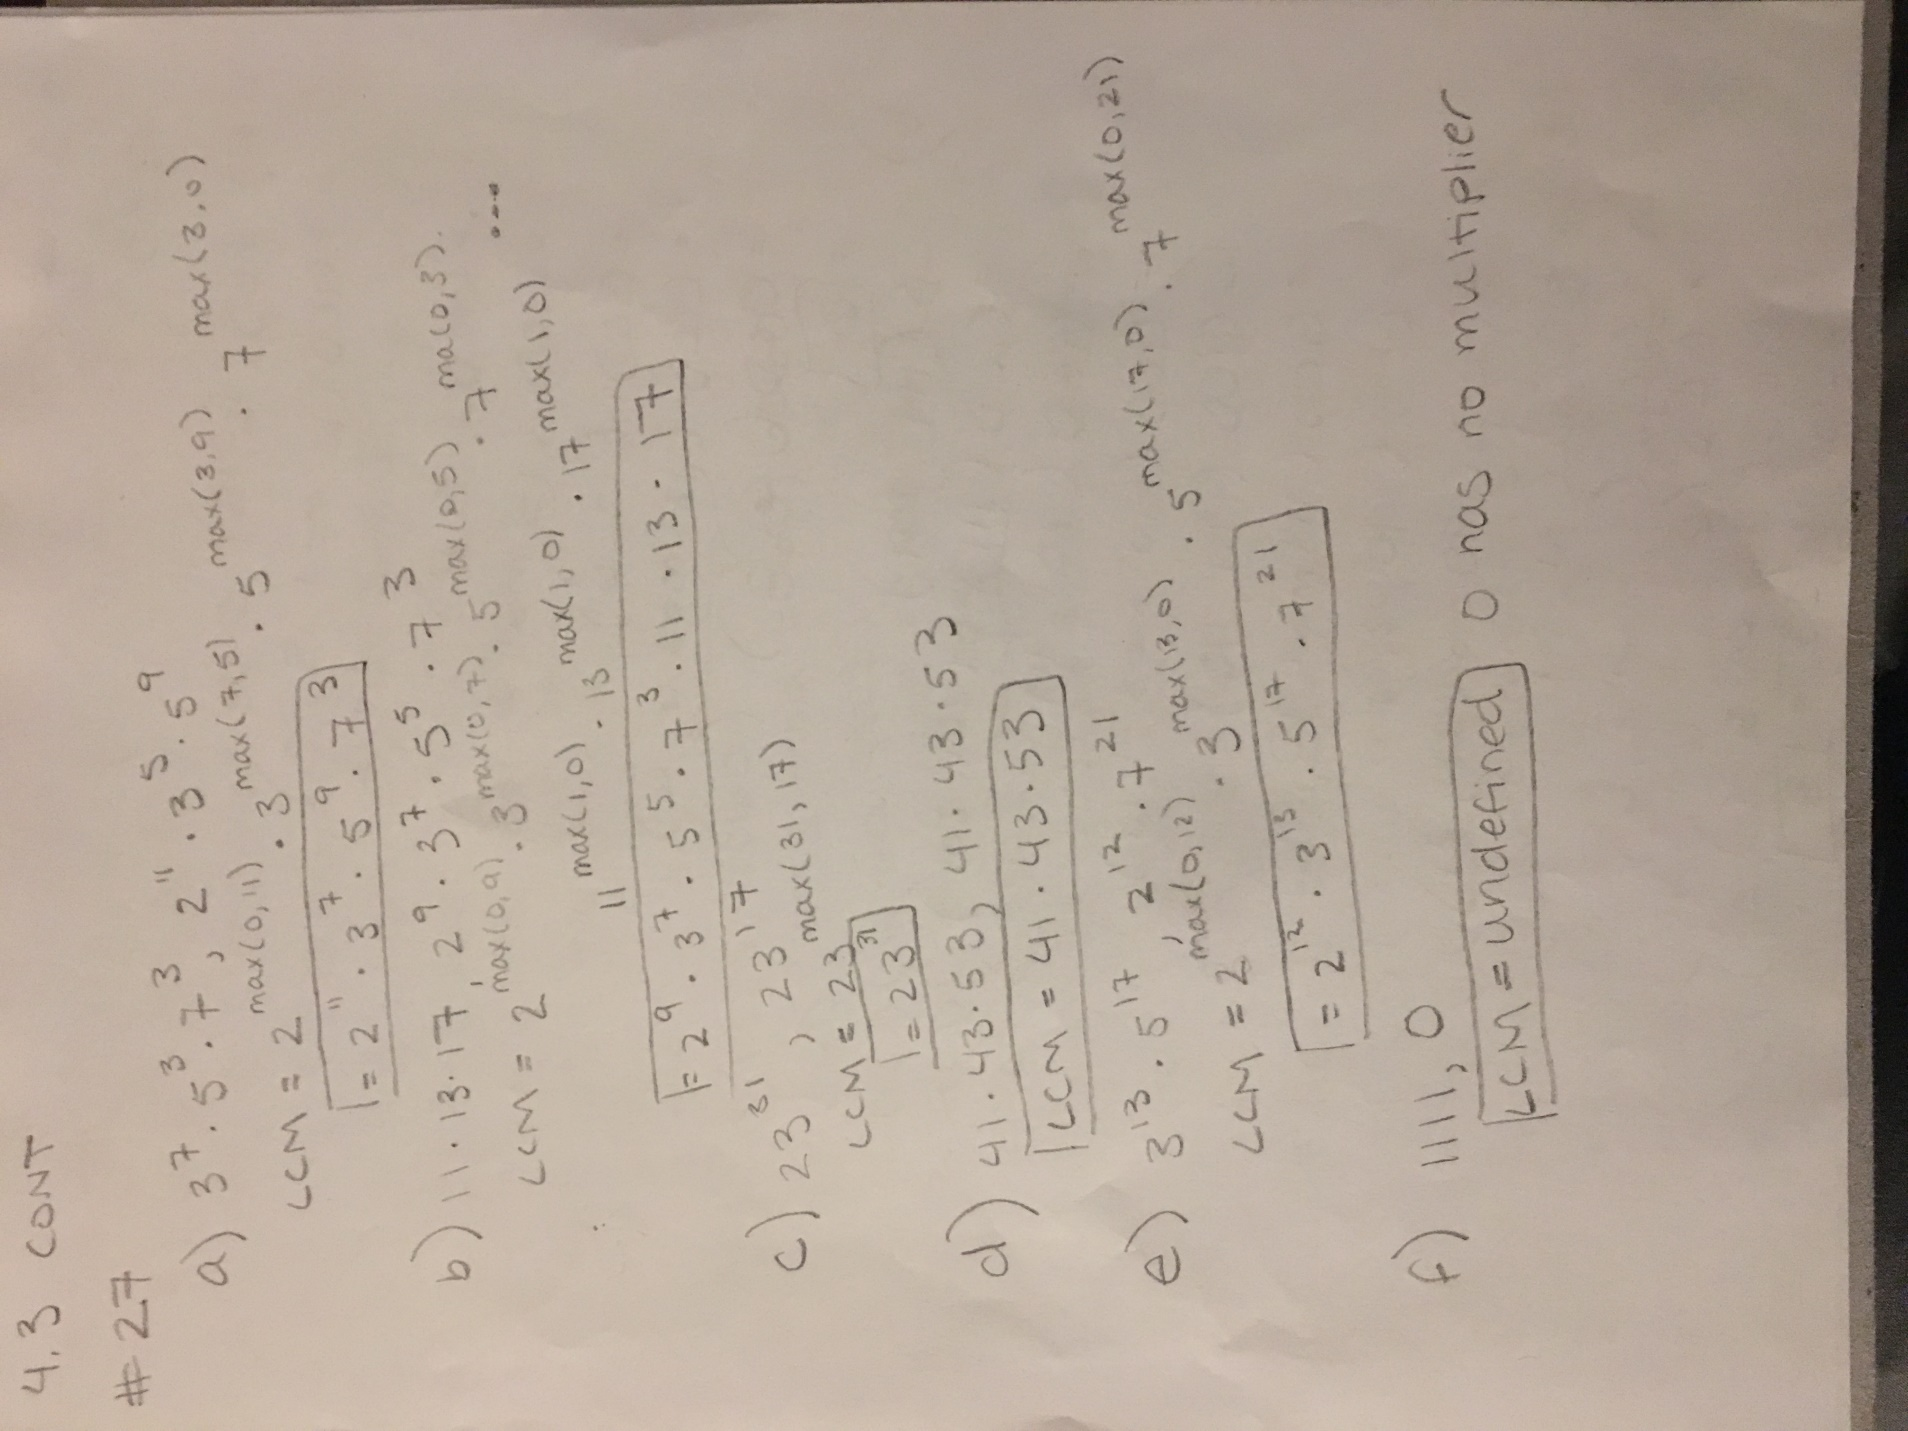 4.3 CONT
#27
a) 3⁷ · 5³ · 7³, 2¹¹ · 3⁵ · 5⁹
LCM = 2^max(0,11) · 3^max(7,5) · 5^max(3,9) · 7^max(3,0)
= 2¹¹ · 3⁷ · 5⁹ · 7³
b) 11 · 13 · 17, 2⁹ · 3⁷ · 5⁵ · 7³
LCM = 2^max(0,9) · 3^max(0,7) · 5^max(0,5) · 7^ma(0,3) · ...
11^max(1,0) · 13^max(1,0) · 17^max(1,0)
= 2⁹ · 3⁷ · 5⁵ · 7³ · 11 · 13 · 17
c) 23³¹, 23¹⁷
LCM = 23^max(31,17)
= 23³¹
d) 41 · 43 · 53, 41 · 43 · 53
LCM = 41 · 43 · 53
e) 3¹³ · 5¹⁷, 2¹² · 7²¹
LCM = 2^max(0,12) · 3^max(13,0) · 5^max(17,0) · 7^max(0,21)
= 2¹² · 3¹³ · 5¹⁷ · 7²¹
f) 1111, 0
LCM = undefined 0 has no multiplier